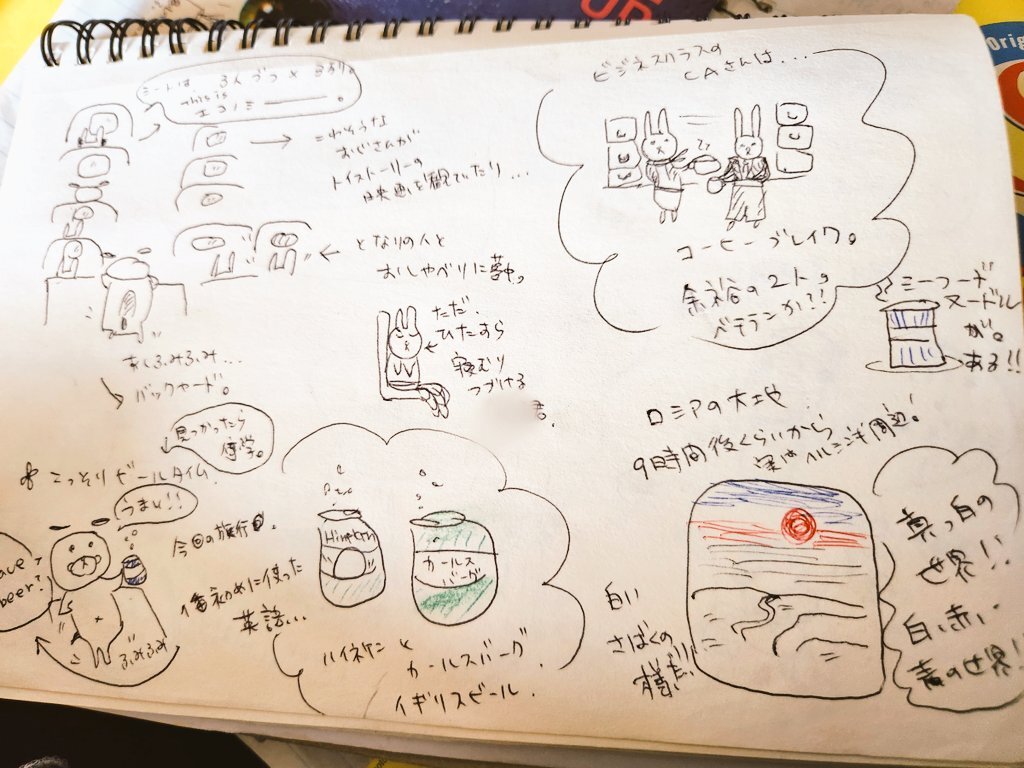 シートは 3人づつ × 3列。
this is
エコノミー。
こわそうな
おじさんが
トイストーリーの
映画を観ていたり...
となりの人と
おしゃべりに夢中。
あしふみふみ...
バックヤード。
ただ、
ひたすら
つづける
ビジネスクラスの
CAさんは...
コーヒーブレイク。
余裕の2人。
ベテランか!?
ミーフード
ヌードル
が。
ある!!
見つかったら
こっそりビールタイム
うまい!!
beer?
ふみふみ
今回の旅行
初めに使った
英語...
カールス
バーグ
ハイネケンと
カールスバーグ
イギリスビール.
ロシアの大地
9時間後くらいから
ヘルシンキ周辺!
白い
さばくの
様だ!!
真っ白の
世界!!
白い、赤い、
青の世界!
Orig
UP